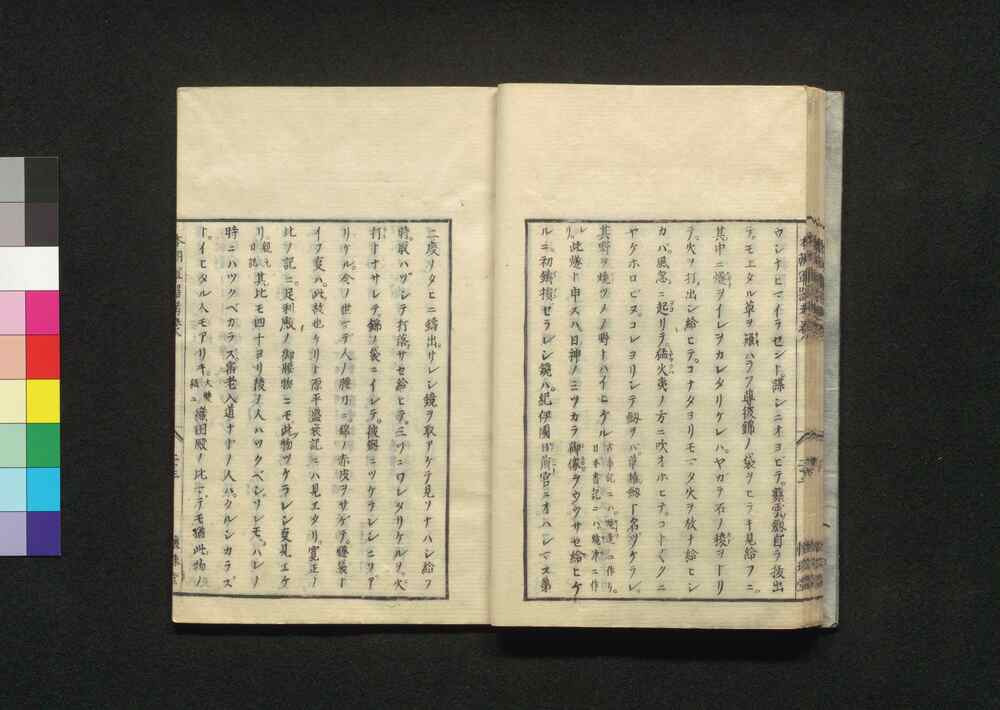 ウシナヒマイラセント謀シニオヨビテ。叢雲劔自ラ抜出
テ。モエタル草ヲ薙ハラフ。尊彼錦ノ袋ヲヒラキ見給フニ。
其中ニ燧ヲイレヲカレタリケレハ。ヤガテ石ノ稜ヲトリ
テ。火ヲ打出シ給ヒテ。コナタヨリモマタ火ヲ放ナ給ヒシ
カバ。風忽ニ起リテ。猛火夷ノ方ニ吹オホヒテ。コトくクニ
ヤケホロビヌコレヨリシテ劔ヲバ草薙劔ト名ヅケラレ。
其野ヲ焼ツメノ野トハイヒケル
古事記ニハ焼遣ニ作ル。
日本書記ニハ焼津ニ作ル
此燧ト申スハ日神ノミツカラ御像ヲウツサセ給ヒケ
ルニ。初鋳損ゼラレシ鏡ハ。紀伊國日前宮ニオハシマス。第
二度リタヒニ鋳出サレシ鏡ヲ取アゲテ見ソナハシ給フ
時。取ハヅシテ打落サセ給ヒテ。三ツニワレタリケルヲ。火
打トナサレテ。錦ノ袋ニイレテ。彼劔ニツケラレシニヨア
リケル。今ノ世マデ人ノ腰刀ニ錦ノ赤皮ヲサゲテ燧袋ト
イフ事ハ。此故也ケリト源平盛衰記ニハ見エタリ。寛正ノ
比ヲ記ニ。足利殿ノ御腰物ニモ此物ツケラレシ事見エケ
リ。
親元
日記
其比モ四十ヨリ後ノ人ハツクベシ。ソレモ。ハレノ
時ニハツクベカラズ。宿老入道ナドノ人ハ。クルシカラズ
トイヒタル人モアリキ。
大雙
紙ニ
織田殿ノ比マデモ猶此物ノ